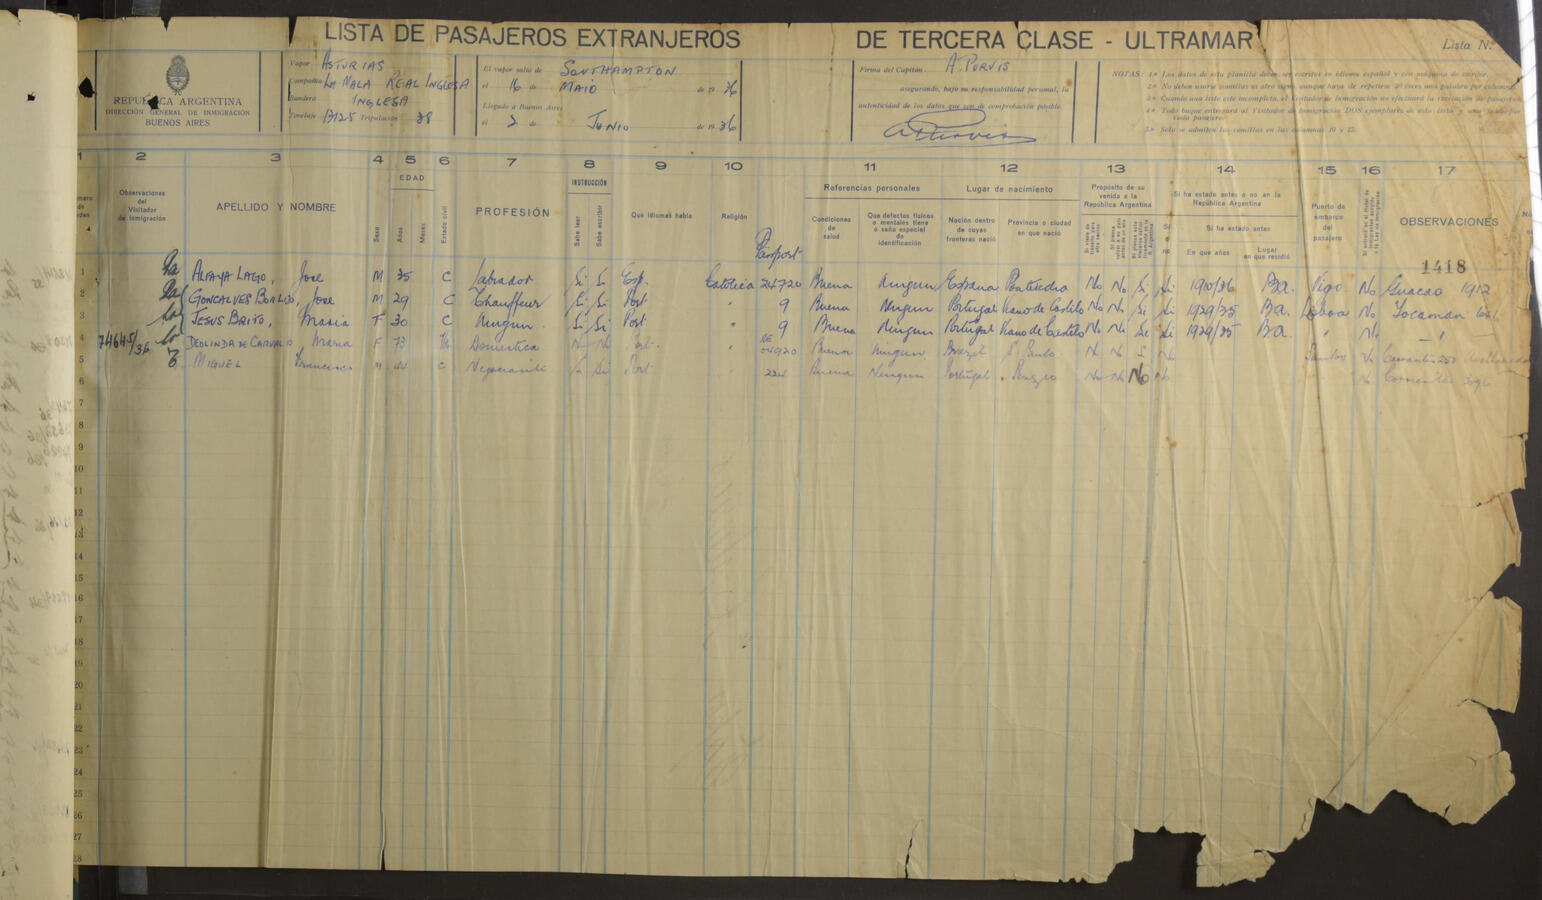 LISTA DE PASAJEROS EXTRANJEROS DE TERCERA CLASE - ULTRAMAR
Lista N.º
REPUBLICA ARGENTINA
DIRECCIÓN GENERAL DE INMIGRACIÓN
BUENOS AIRES
Vapor ASTURIAS
Compañía LA MALA REAL INGLESA
Bandera INGLESA
Tonelaje 13125 Tripulación 38
El vapor salió de SOUTHAMPTON
el 16 de MAIO de 1936
Llegado a Buenos Aires
el 2 de JUNIO de 1936
Firma del Capitán A. PURVIS
asegurando, bajo su responsabilidad personal, la
autenticidad de los datos que son de comprobación posible.
APurvis
NOTAS: 1.ª Los datos de esta planilla deben ser escritos en idioma español y con máquina de escribir.
2.ª No deben usarse comillas ni otro signo, aunque haya de repetirse 20 veces una palabra por columna.
3.ª Cuando una lista esté incompleta, el Visitador de Inmigración no efectuará la revisación de pasajeros.
4.ª Todo buque entregará al Visitador de Inmigración DOS ejemplares de esta lista y uno
vista pasajeros.
5.ª Sólo se admiten las comillas en las columnas 10 y 15.
1 2 3 4 5 6 7 8 9 10 11 12 13 14 15 16 17
Observaciones del Visitador de Inmigración
APELLIDO Y NOMBRE
Sexo
EDAD
Años
Meses
Estado civil
PROFESIÓN
INSTRUCCIÓN
Sabe leer
Sabe escribir
Qué idiomas habla
Religión
Passport
Referencias personales
Condiciones de salud
Que defectos físicos o mentales tiene o seña especial de identificación
Lugar de nacimiento
Nación dentro de cuyas fronteras nació
Provincia o ciudad en que nació
Propósito de su venida a la República Argentina
Si ha estado antes o no en la República Argentina
Si o no
Si ha estado antes
En que años
Lugar en que residió
Puerto de embarque del pasajero
OBSERVACIONES
1418
1 ALFAYA LAGO, Jose M 35 C Labrador Si Si Esp. Católica 24720 Buena Ningun España Pontevedra No No Si Si 1910/36 Ba. Vigo No Guacao 1912
2 GONCALVES BORLIDO, Jose M 29 C Chauffeur Si Si Port. " 9 Buena Ningun Portugal Viano de Castilo No No Si Si 1929/35 Ba. Lisboa No Tocaman
3 JESUS BRITO, Maria F 30 C Ningun Si Si Port " 9 Buena Ningun Portugal Viano de Castilo No No Si Si 1929/35 Ba. " No "
4 74645/36 DEOLINDA DE CARVALO Maria F 73 Domestica No No Port. " 04920 Buena Ningun Brazil S. Paulo No No S No Santos No
5 MIGUEL Francisco M 44 C Negociante Si Si Port 224 Buena Ningun Portugal No No No No " No Corrientes 3096
6
7
8
9
10
11
12
13
14
15
16
17
18
19
20
21
22
23
24
25
26
27
28